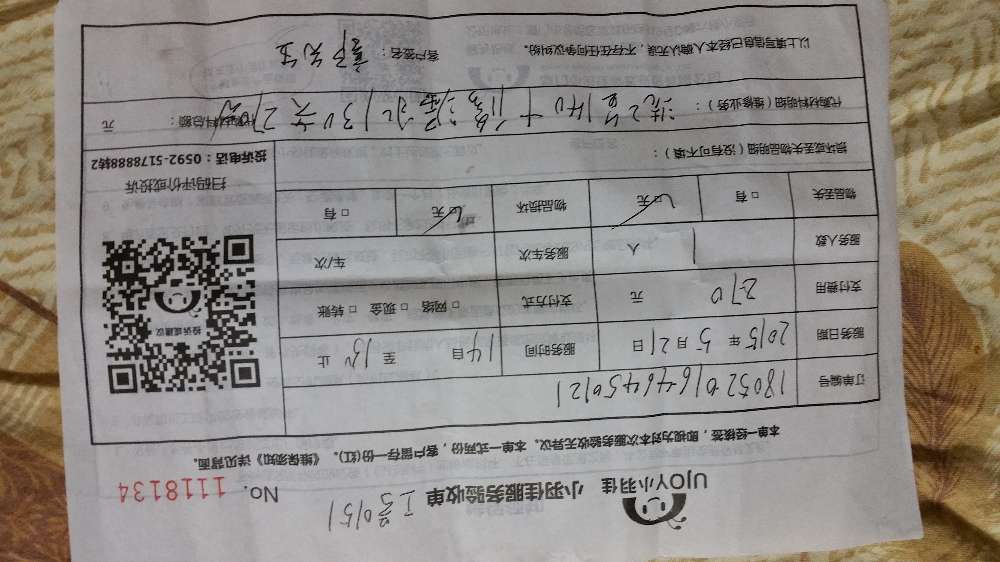 UJOY小羽佳 小羽佳服务验收单 工号0151 No. 1118134
本单一经核签，即视为对本次服务验收无异议。本单一式两份，客户留存一份(红)。《维保须知》详见背面。
订单编号 1805201646450121
服务日期 2015年5月21日 服务时间 14自 至 15 止
支付费用 270 元 支付方式 □网络 □现金 □转账
服务人数 1 人 服务车次 车/次
物品丢失 □有 □无 物品损坏 □无 □有
投诉或建议
扫码评价或投诉
投诉电话：0592-5178888转2
损坏或丢失物品明细（没有可不填）：
代购材料明细（维修业务）： 140 130 270 代购材料总额： 元
以上填写信息已经本人确认无误，不存在任何争议纠纷。 客户签名： 先生